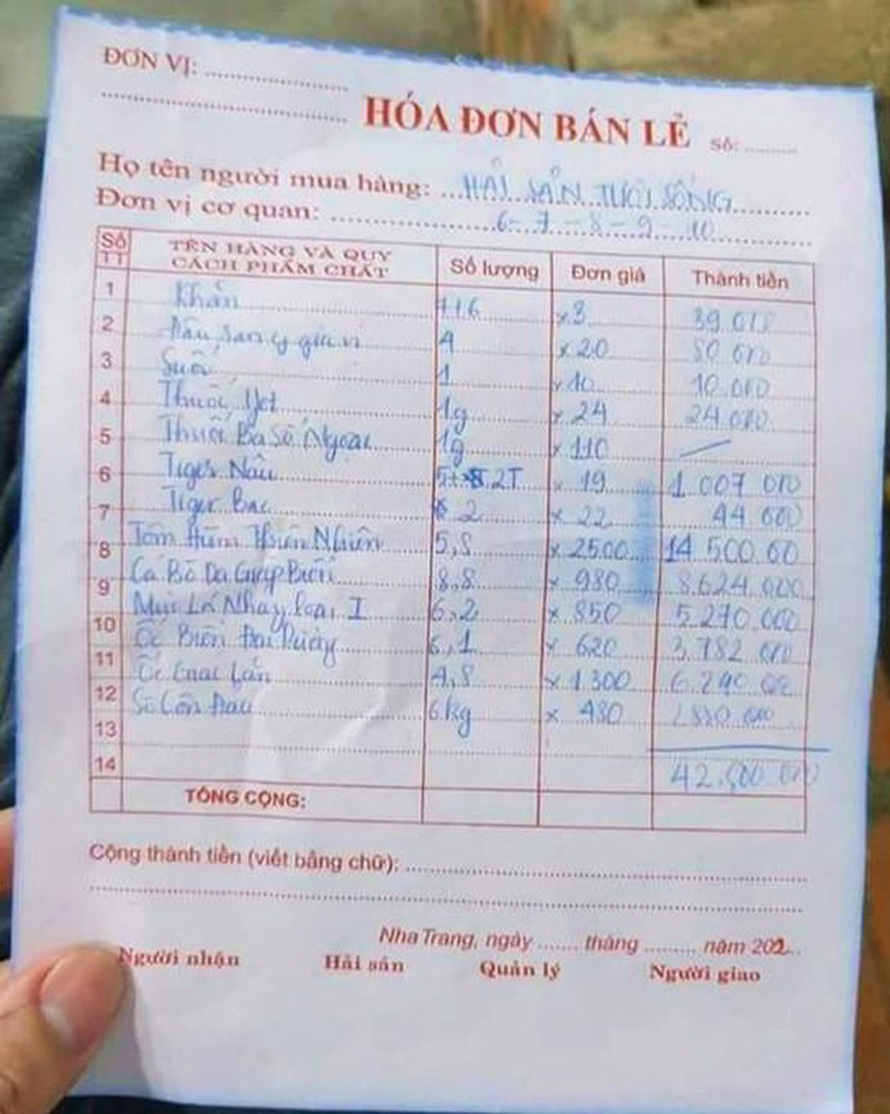 ĐƠN VỊ: ........................
........................................
HÓA ĐƠN BÁN LẺ Số: .........
Họ tên người mua hàng: HẢI SẢN TƯƠI SỐNG
Đơn vị cơ quan: 6 - 7 - 8 - 9 - 10
Số TT TÊN HÀNG VÀ QUY CÁCH PHẨM CHẤT Số lượng Đơn giá Thành tiền
1 Khăn x3 39.000
2 x20 80.000
3 Suối 1 x10 10.000
4 Thuốc 1g x 24 24.000
5 Thuốc Ba Số Ngoại 1g x 110
6 Tiger Nâu 2T x 19 1.007 000
7 Tiger Bạc 2 x 22 44.000
8 Tôm Hùm Thiên Nhiên 5,8 x 2500 14 500.00
9 Cá Bò Da Giáp Biển 8.8 x 980 8.624.000
10 Mực Lá Nháy loại I 6,2 x 850 5.270.000
11 Ốc Biển Đại Dương 6,1 x 620 3.782.000
12 Ốc Lớn 4,8 x 1300
13 Sò 6kg x 480 2880.000
14 42.500.000
TỔNG CỘNG:
Cộng thành tiền (viết bằng chữ): ........................
........................................
Nha Trang, ngày ....... tháng ......... năm 202...
Người nhận Hải sản Quản lý Người giao